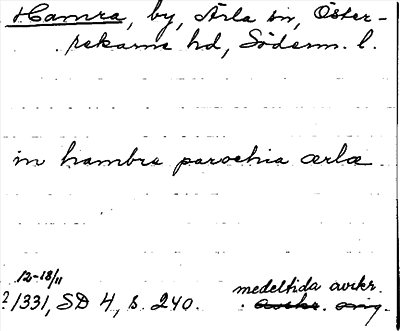 Hamra, by, Ärla sn, Öster-
rekarne hd, Söderm. l.
in hambra parochia ærlæ
12-18/11
? 1331, SD 4, s. 240.
medeltida avskr.
avskr. orig.